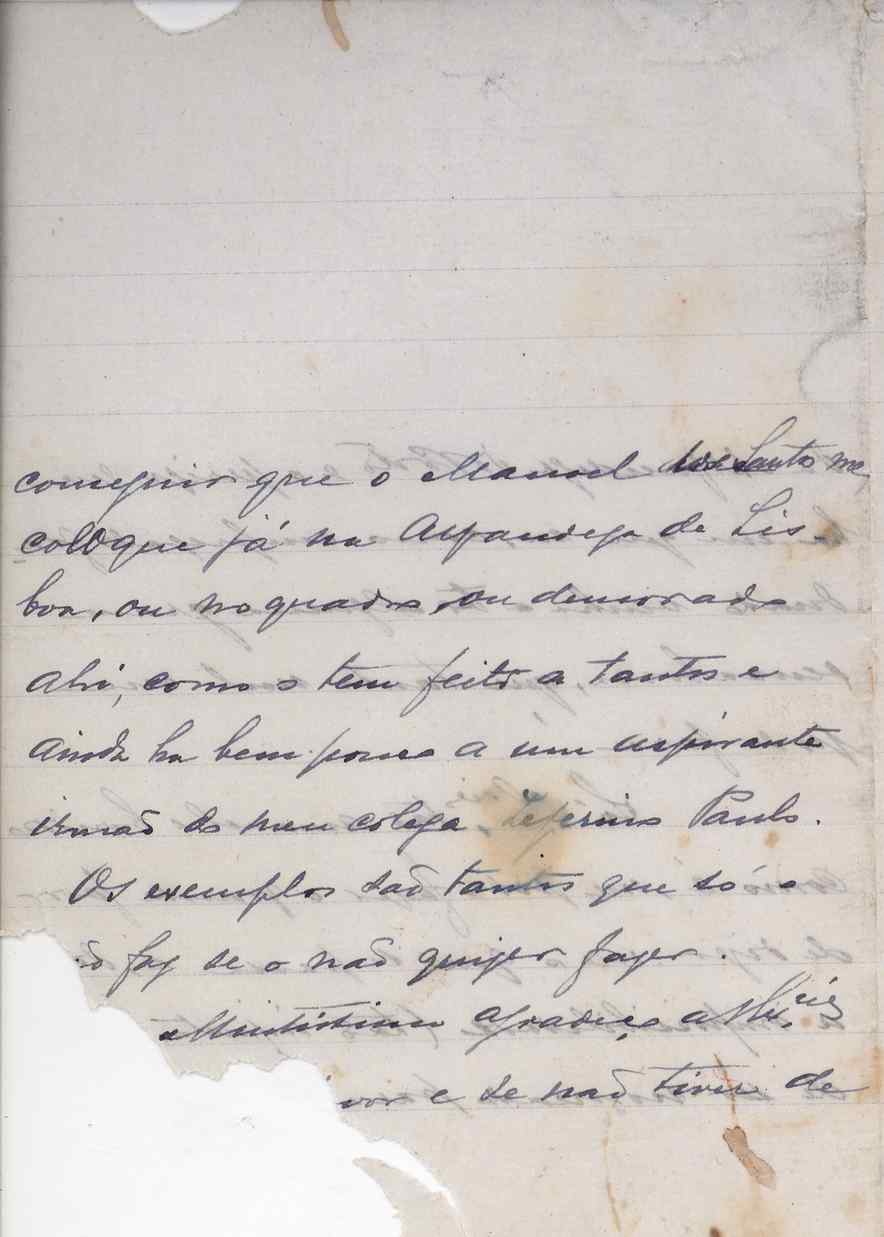 conseguir que o Manuel dos Santos me
coloque já na Alfandega de Lis-
boa, ou no quadro, ou demorado
ahi, como o tem feito a tantos e
ainda ha bem pouco a um aspirante
irmão do meu colega, Zeferino Paulo.
Os exemplos são tantos que só o
não faz se o não quizer fazer.
Muitissimo agradeço a
vor e se não tiver de